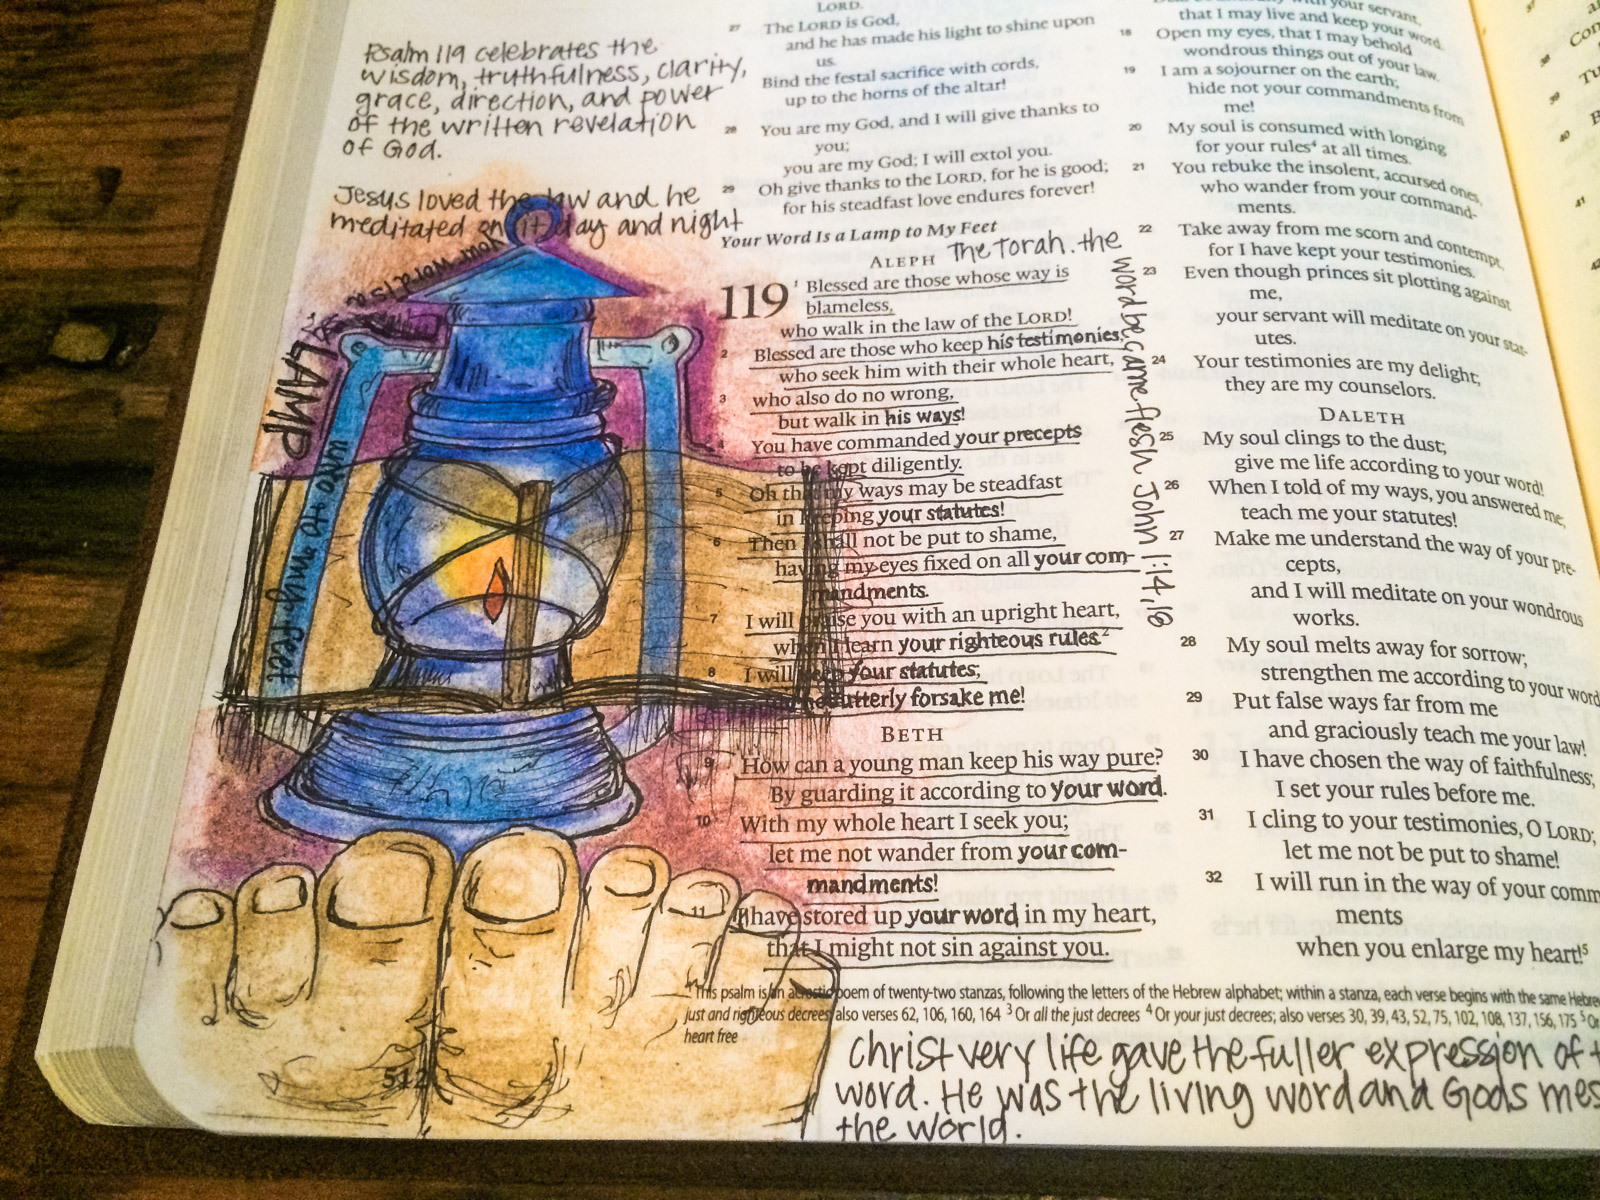 Psalm 119 celebrates the
wisdom, truthfulness, clarity,
grace, direction, and power
of the written revelation
of God.
Jesus loved the law and he
meditated on it day and night
Your word is a
LAMP
unto my feet
512
LORD.
27 The LORD is God,
and he has made his light to shine upon
us.
Bind the festal sacrifice with cords,
up to the horns of the altar!
28 You are my God, and I will give thanks to
you;
you are my God; I will extol you.
29 Oh give thanks to the LORD, for he is good;
for his steadfast love endures forever!
Your Word Is a Lamp to My Feet
ALEPH
The Torah. the
word became flesh John 1:14,16
119 1 Blessed are those whose way is
blameless,
who walk in the law of the LORD!
2 Blessed are those who keep his testimonies,
who seek him with their whole heart,
3 who also do no wrong,
but walk in his ways!
4 You have commanded your precepts
to be kept diligently.
5 Oh that my ways may be steadfast
in keeping your statutes!
6 Then I shall not be put to shame,
having my eyes fixed on all your com-
mandments.
7 I will praise you with an upright heart,
when I learn your righteous rules.2
8 I will keep your statutes;
utterly forsake me!
BETH
9 How can a young man keep his way pure?
By guarding it according to your word.
10 With my whole heart I seek you;
let me not wander from your com-
mandments!
11 I have stored up your word in my heart,
that I might not sin against you.
with your servant,
that I may live and keep your word.
18 Open my eyes, that I may behold
wondrous things out of your law.
19 I am a sojourner on the earth;
hide not your commandments from
me!
20 My soul is consumed with longing
for your rules4 at all times.
21 You rebuke the insolent, accursed ones,
who wander from your command-
ments.
22 Take away from me scorn and contempt,
for I have kept your testimonies.
23 Even though princes sit plotting against
me,
your servant will meditate on your stat-
utes.
24 Your testimonies are my delight;
they are my counselors.
DALETH
25 My soul clings to the dust;
give me life according to your word!
26 When I told of my ways, you answered me;
teach me your statutes!
27 Make me understand the way of your pre-
cepts,
and I will meditate on your wondrous
works.
28 My soul melts away for sorrow;
strengthen me according to your word
29 Put false ways far from me
and graciously teach me your law!
30 I have chosen the way of faithfulness;
I set your rules before me.
31 I cling to your testimonies, O LORD;
let me not be put to shame!
32 I will run in the way of your comm
ments
when you enlarge my heart!5
1 This psalm is an acrostic poem of twenty-two stanzas, following the letters of the Hebrew alphabet; within a stanza, each verse begins with the same Hebre
just and righteous decrees; also verses 62, 106, 160, 164 3 Or all the just decrees 4 Or your just decrees; also verses 30, 39, 43, 52, 75, 102, 108, 137, 156, 175 5 Or
heart free
Christ very life gave the fuller expression of t
word. He was the living word and Gods mes
the world.